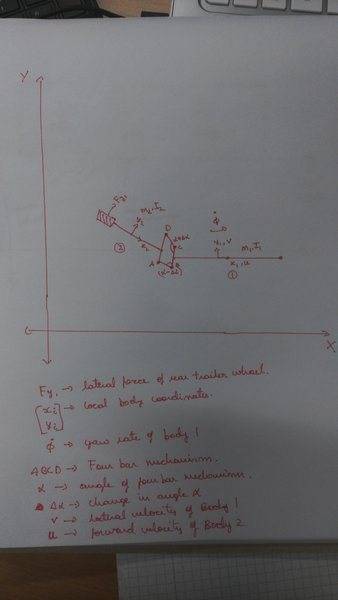 Y
Fy
m2, I2
y2
x2
②
D
α+Δα
C
A
B
(α-Δα)
φ̇
y1, v
m1, I1
x1, u
①
X
Fyi → lateral force of rear trailer wheel.
[xi yi] → local body coordinates.
φ̇ → yaw rate of body 1
ABCD → Four bar mechanism.
α → angle of four bar mechanism.
Δα → change in angle α
v → lateral velocity of Body 1
u → forward velocity of Body 2